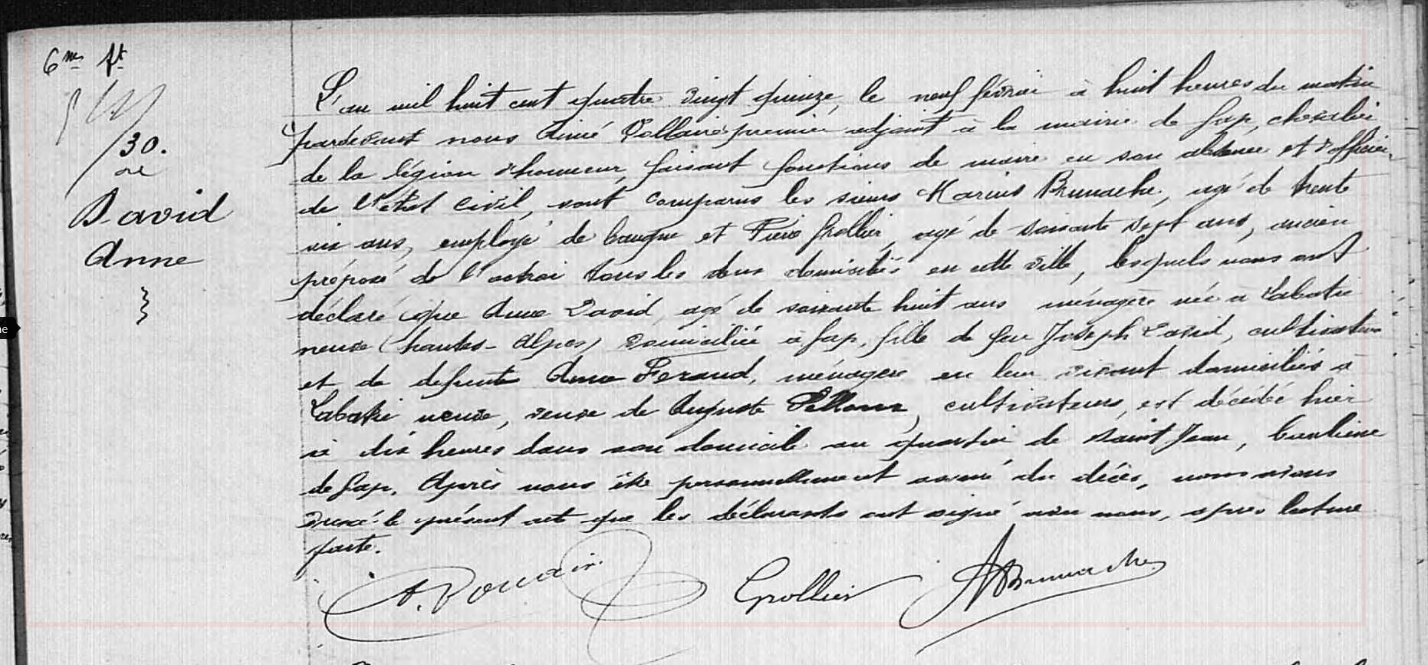 6me ft
/30.
David
Anne
L'an mil huit cent quatre vingt quinze, le neuf février à huit heures du matin
pardevant nous Aimé premier adjoint à la mairie de Gap, chevalier
de la légion d'honneur faisant fonctions de maire en son absence et d'officier
de l'état civil, sont comparus les sieurs Marius Brunache, agé de trente
six ans, employé de banque et Grollier, agé de soixante sept ans, ancien
préposé de l'octroi tous les deux domiciliés en cette ville, lesquels nous ont
déclaré que Anne David, agé de soixante huit ans ménagère née à Labatie
neuve (Hautes-Alpes) domiciliée à Gap, fille de feu Joseph David, cultivateur
et de defunte Anne Feraud, ménagère en leur vivant domiciliés à
Labatie neuve, veuve de Auguste cultivateur, est décédé hier
à dix heures dans son domicile au quartier de Saint Jean, banlieue
de Gap. Après nous être personnellement assuré du décès, nous avons
dressé le présent acte que les déclarants ont signé avec nous, après lecture
faite.
Grollier ABrunache